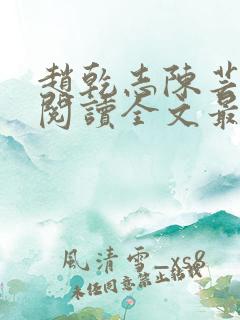 趙乾志陳芸
閱讀全文最
風清雪_xs8
未經同意禁止轉載